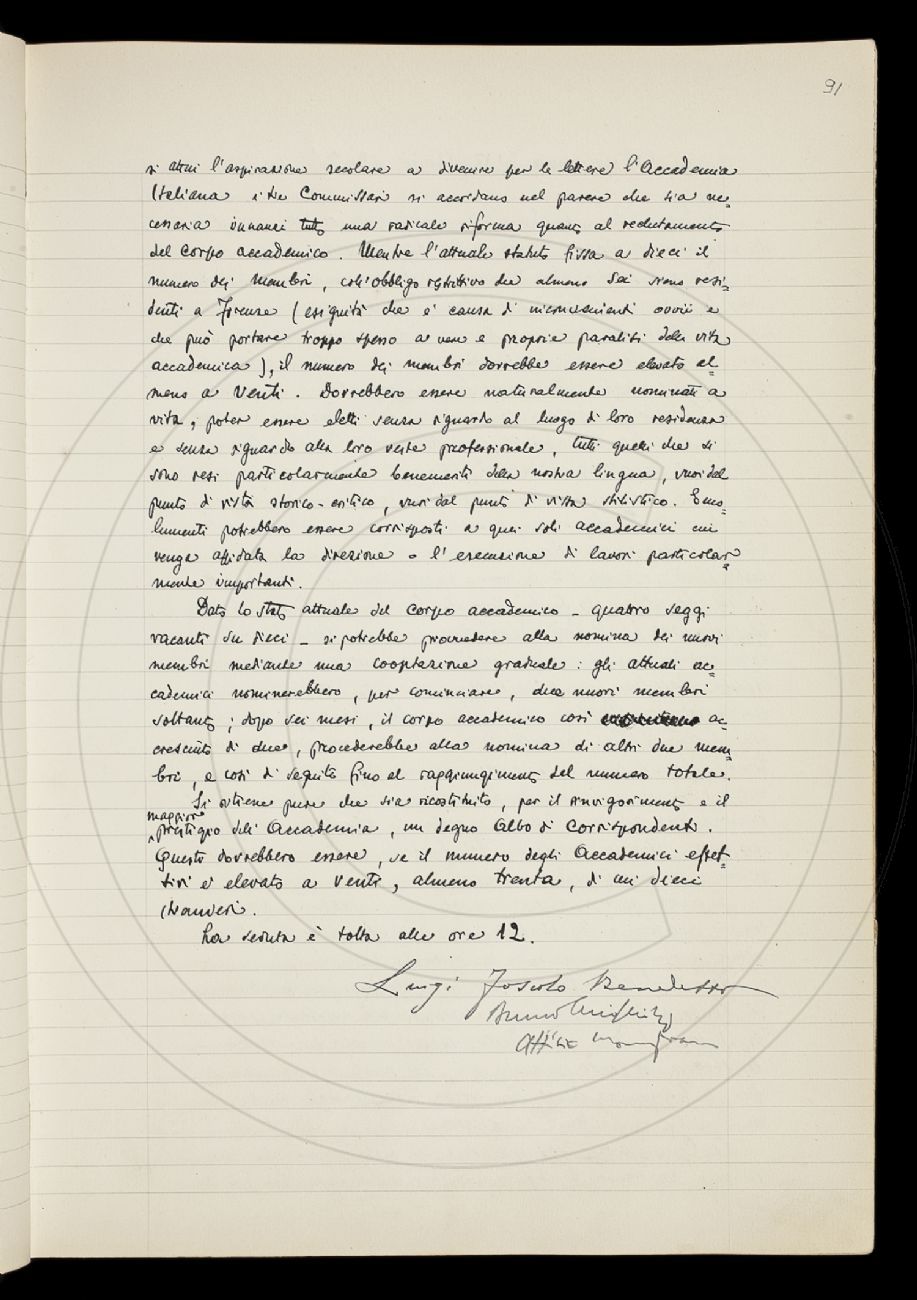 91
si attui l'aspirazione secolare a divenire per le lettere l'Accademia
Italiana i tre Commissari si accordano nel parere che sia ne=
cessaria innanzi tutto una radicale riforma quanto al reclutamento
del corpo accademico. Mentre l'attuale statuto fissa a dieci il
numero dei membri, coll'obbligo restrittivo che almeno sei siano resi=
denti a Firenze (esiguità che è causa di inconvenienti ovvii e
che può portare troppo spesso a vere e proprie paralisi della vita
accademica), il numero dei membri dovrebbe essere elevato al=
meno a venti. Dovrebbero essere naturalmente nominati a
vita, e poter essere eletti senza riguardo al luogo di loro residenza
e senza riguardo alla loro veste professionale, tutti quelli che si
sono resi particolarmente benemeriti della nostra lingua, vuoi dal
punto di vista storico-critico, vuoi dal punto di vista stilistico. Emo=
lumenti potrebbero essere corrisposti a quei soli accademici cui
venga affidata la direzione o l'esecuzione di lavori particolar=
mente importanti.
Dato lo stato attuale del corpo accademico - quattro seggi
vacanti su dieci - si potrebbe provvedere alla nomina dei nuovi
membri mediante una cooptazione graduale: gli attuali ac=
cademici nominerebbero, per cominciare, due nuovi membri
soltanto; dopo sei mesi, il corpo accademico così ac=
cresciuto di due, procederebbe alla nomina di altri due mem=
bri, e così di seguito fino al raggiungimento del numero totale.
Si ritiene pure che sia ricostituito, per il rinvigorimento e il
maggiore
prestigio dell'Accademia, un degno Albo di Corrispondenti.
Questi dovrebbero essere, se il numero degli Accademici effet=
tivi è elevato a venti, almeno trenta, di cui dieci
stranieri.
La seduta è tolta alle ore 12.
Luigi Foscolo Benedetto
Bruno Migliorini
Attilio Momigliano